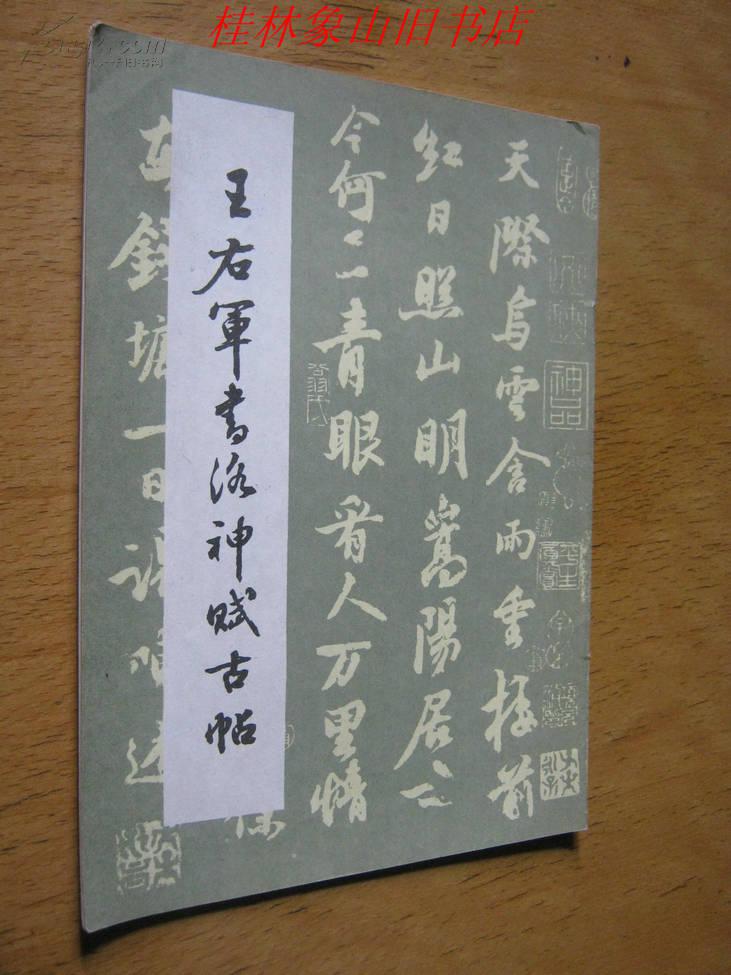 桂林象山旧书店
王右軍書洛神賦古帖
天際烏雲含雨重樓前
紅日照山明嵩陽居士
今何在青眼看人万里情
錢塘一日
神品